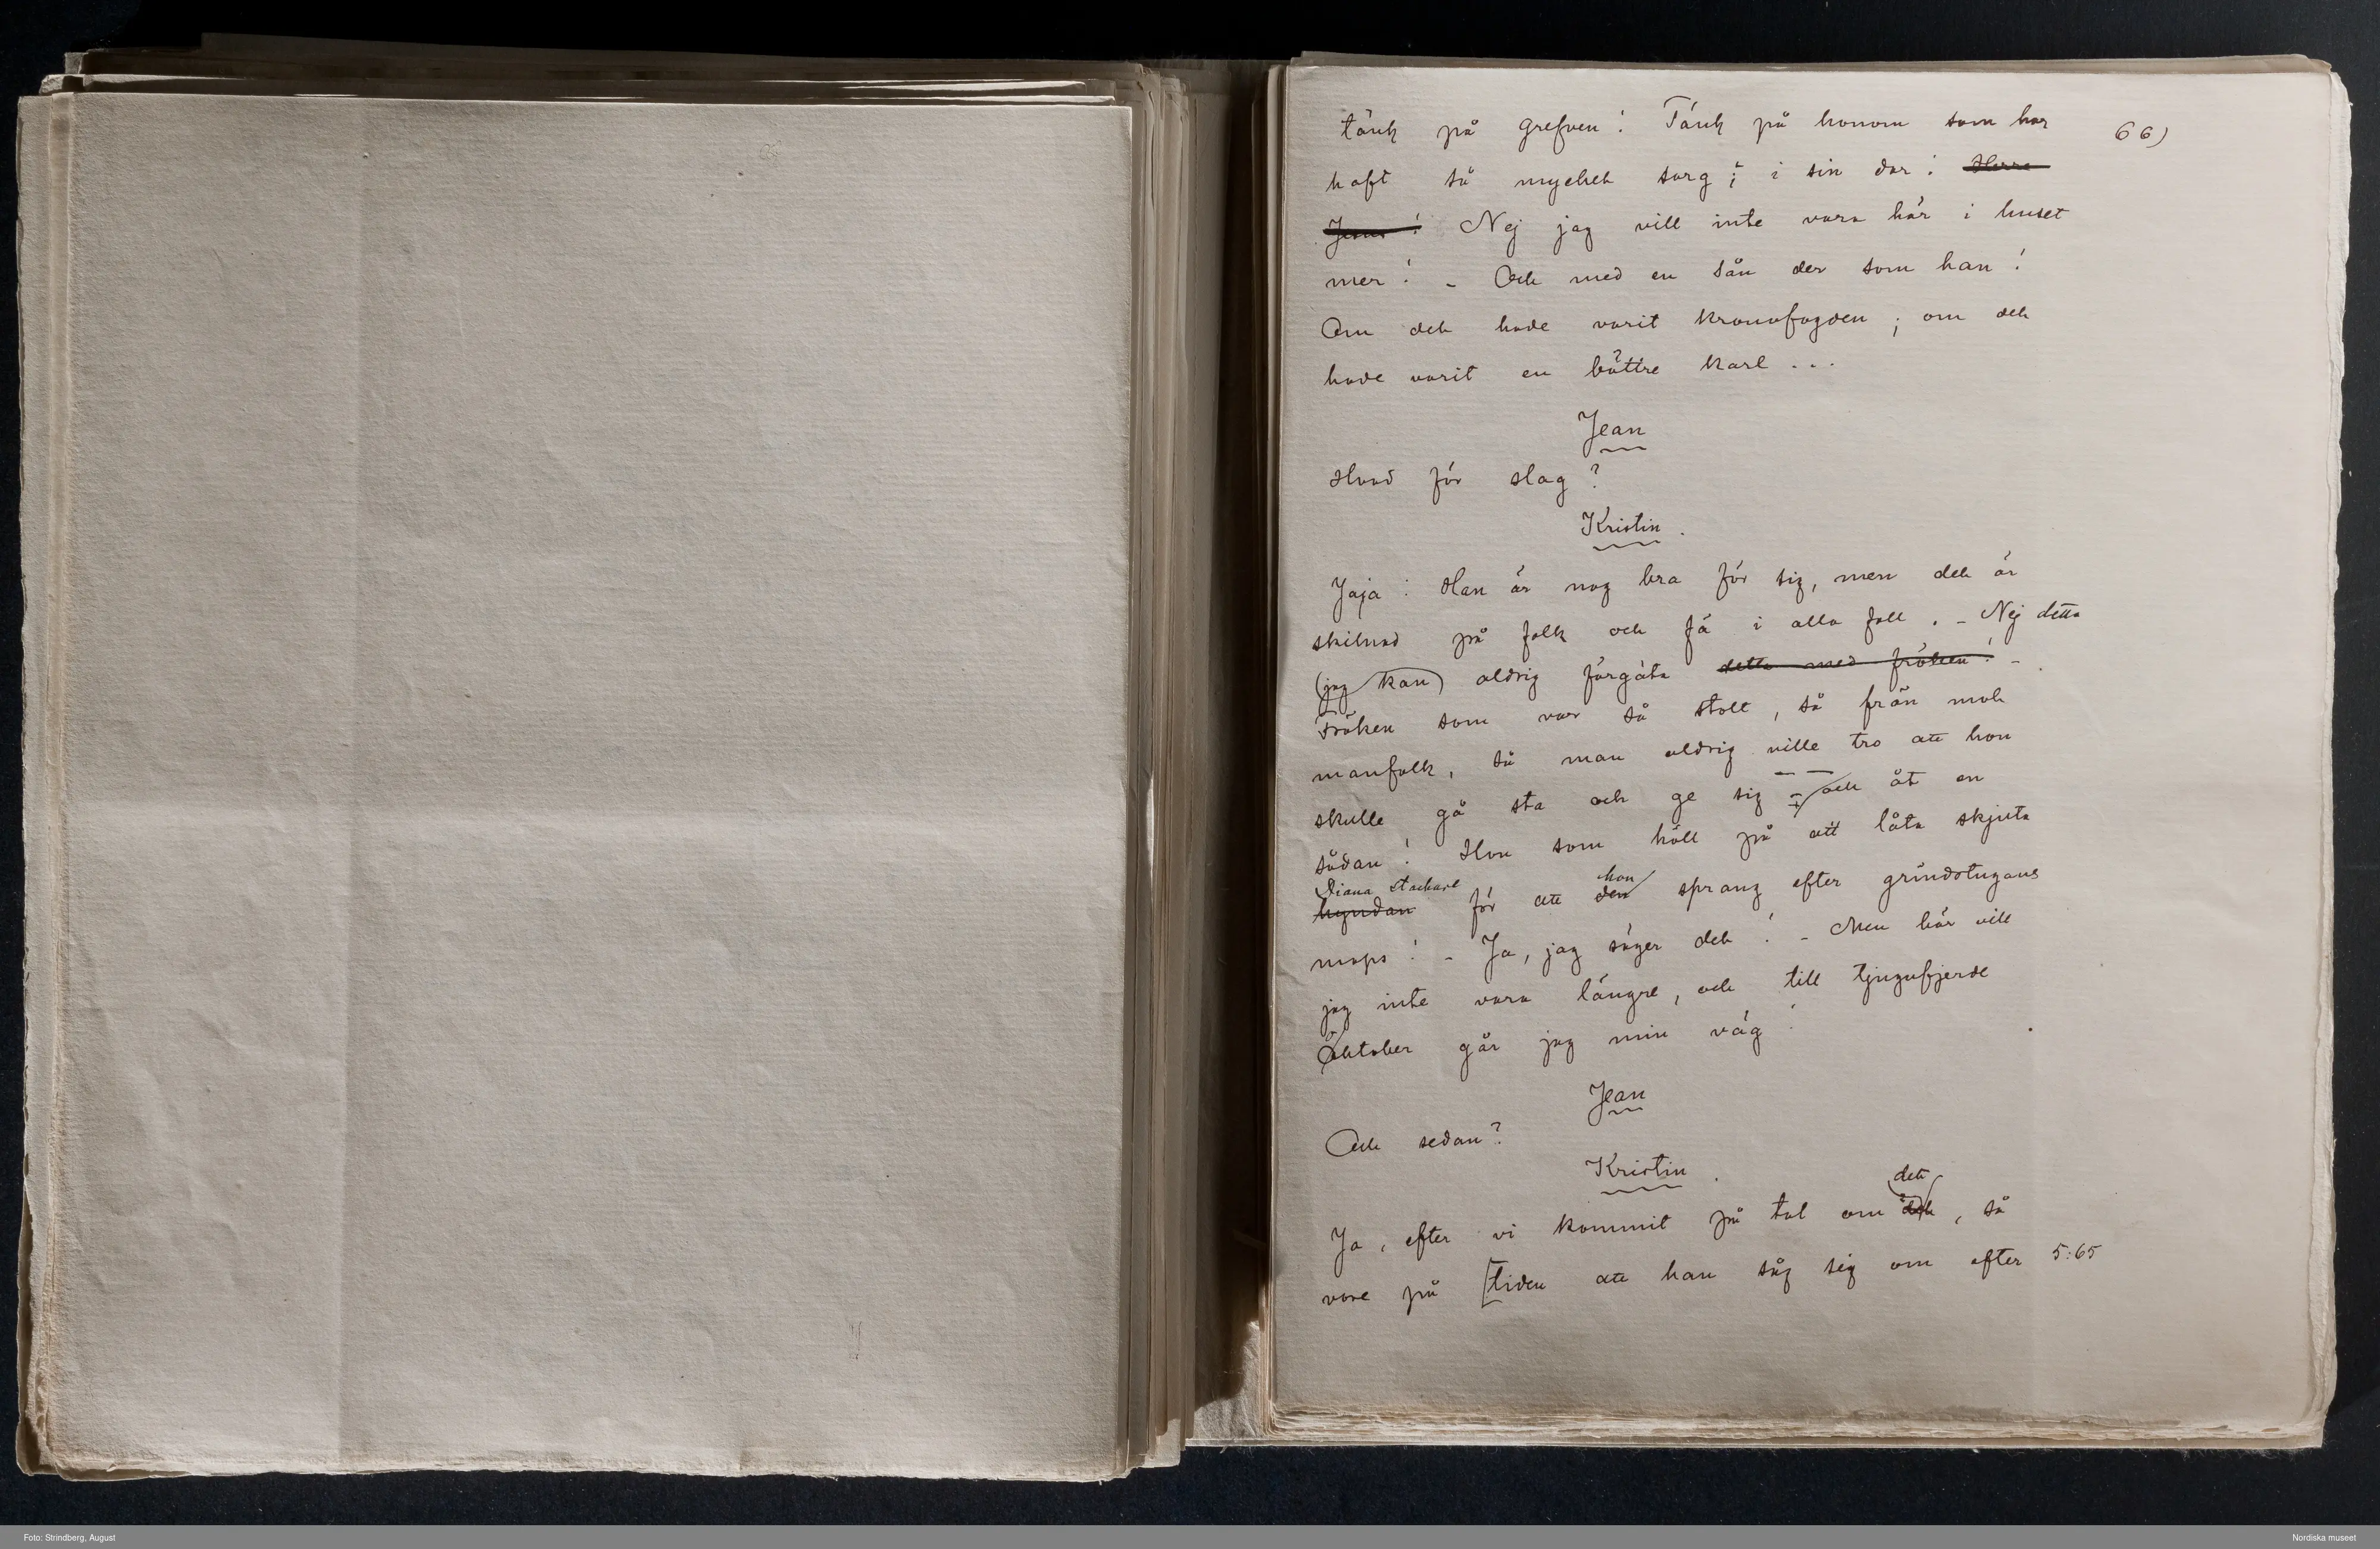 tänk på grefven! Tänk på honom som har 66)
haft så mycket sorg i sin dar! Herre
Jesus! Nej jag vill inte vara här i huset
mer! – Och med en sån der som han!
Om det hade varit kronofogden; om det
hade varit en bättre karl...
Jean
Hvad för slag?
Kristin.
Jaja! Han är nog bra för sig, men det är
skilnad på folk och fä i alla fall. – Nej detta
(jag kan) aldrig förgäta detta med fröken! –
Fröken som var så stolt, så från mot
manfolk, så man aldrig ville tro att hon
skulle gå sta och ge sig – och åt en
sådan! Hon som höll på att låta skjuta
Diana stackare hon
hyndan för att den sprang efter grindstugans
mops! – Ja, jag säger det! – Men här vill
jag inte vara längre, och till tjugufjerde
Oktober går jag min väg!
Jean
Och sedan?
Kristin.
det
Ja, efter vi kommit på tal om det, så
vore på [tiden att han såg sig om efter 5:65
Foto: Strindberg, August
Nordiska museet